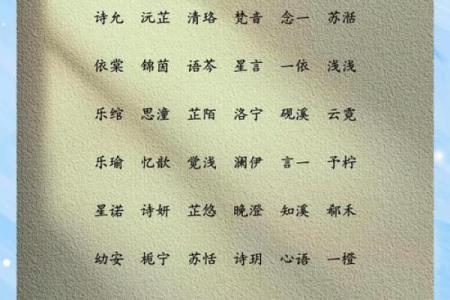 诗允 沅芷 清珞 梵音 念一 苏湉
依棠 锦茵 语芩 星言 一依 浅浅
乐绾 思潼 芷陌 洛宁 砚溪 云霓
乐瑜 忆歆 觉浅 澜伊 言一 予柠
星诺 诗妍 芷悠 晚澄 知溪 郗禾
幼安 栀宁 苏恬 诗玥 心语 一橙